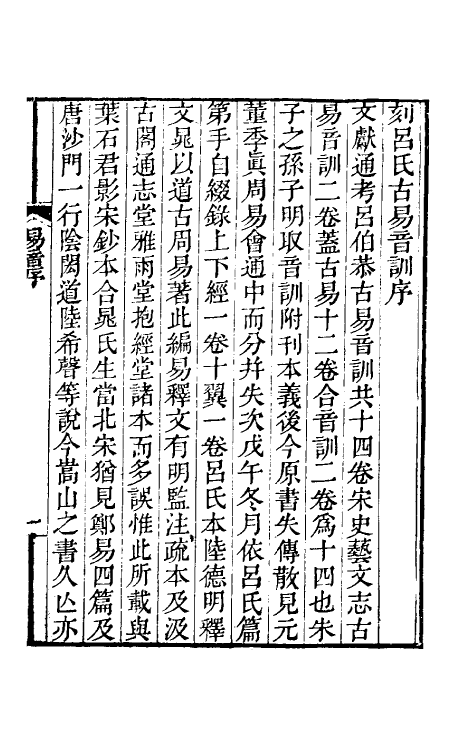 刻呂氏古易音訓序
文獻通考呂伯恭古易音訓共十四卷宋史藝文志古
易音訓二卷蓋古易十二卷合音訓二卷爲十四也朱
子之孫子明取音訓附刊本義後今原書失傳散見元
董季眞周易會通中而分幷失次戊午冬月依呂氏篇
第手自綴錄上下經一卷十翼一卷呂氏本陸德明釋
文晁以道古周易著此編易釋文有明監注疏本及汲
古閣通志堂雅雨堂抱經堂諸本而多誤惟此所載與
葉石君影宋鈔本合晁氏生當北宋猶見鄭易四篇及
唐沙門一行陰閎道陸希聲等說今嵩山之書久亾亦
易音序
一